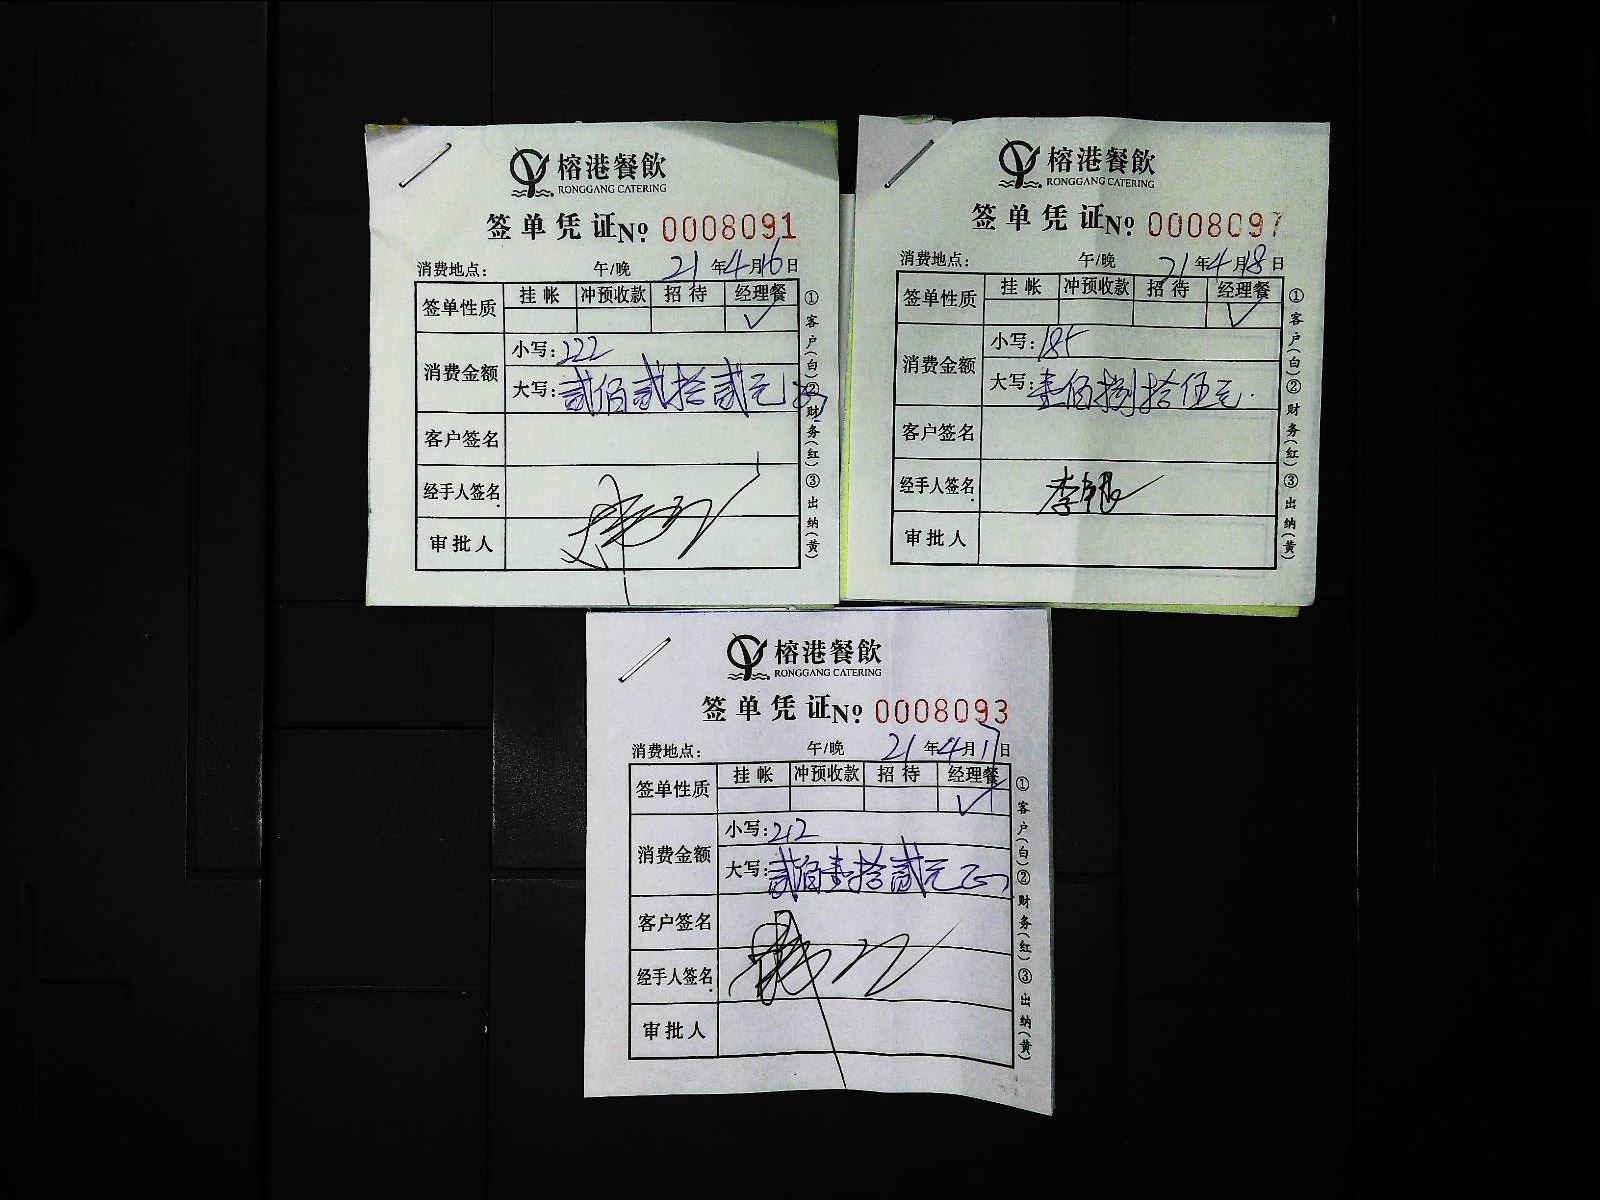 榕港餐飲
RONGGANG CATERING
签单凭证№ 0008091
消费地点: 午/晚 21年4月16日
签单性质 挂帐 冲预收款 招待 经理餐
✓
消费金额 小写:222
大写:贰佰贰拾贰元正
客户签名
经手人签名
审批人
①客户(白)②财务(红)③出纳(黄)
榕港餐飲
RONGGANG CATERING
签单凭证№ 0008097
消费地点: 午/晚 21年4月18日
签单性质 挂帐 冲预收款 招待 经理餐
✓
消费金额 小写:185
大写:壹佰捌拾伍元.
客户签名
经手人签名
审批人
①客户(白)②财务(红)③出纳(黄)
榕港餐飲
RONGGANG CATERING
签单凭证№ 0008093
消费地点: 午/晚 21年4月17日
签单性质 挂帐 冲预收款 招待 经理餐
✓
消费金额 小写:212
大写:贰佰壹拾贰元正
客户签名
经手人签名
审批人
①客户(白)②财务(红)③出纳(黄)